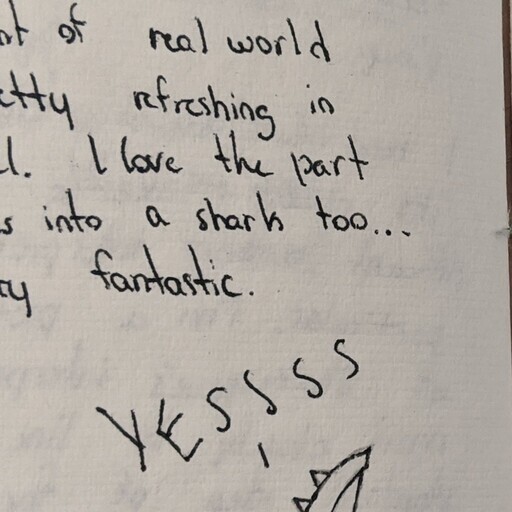 of real world
refreshing in
I love the part
into a shark too...
fantastic.
YESSSS